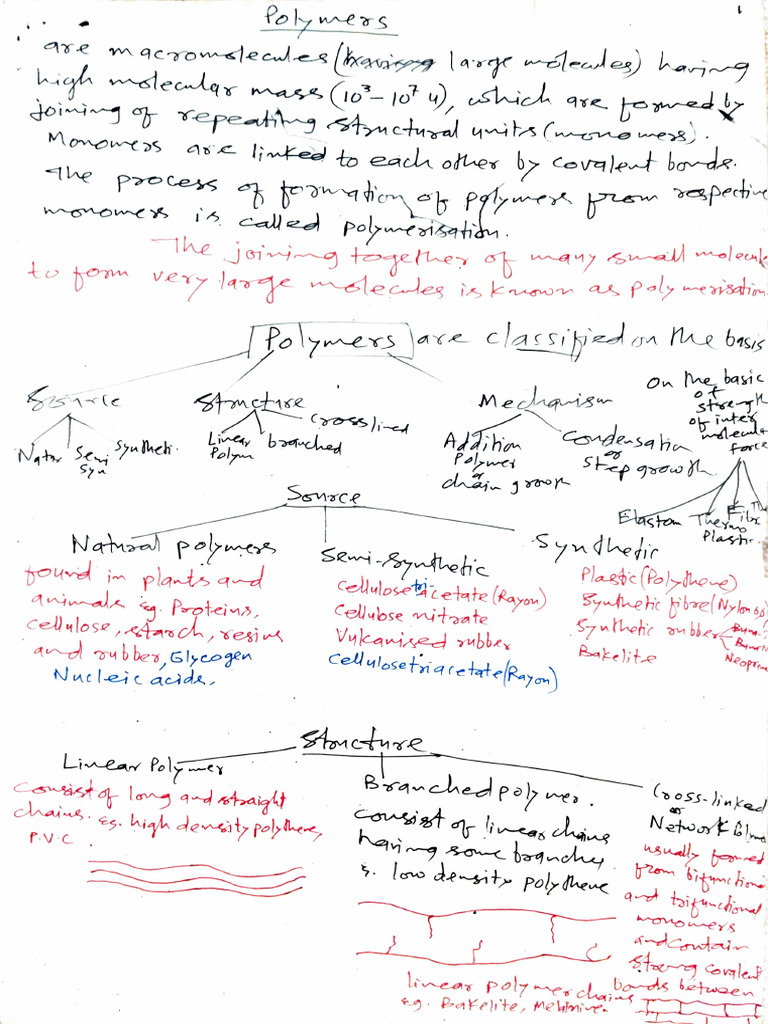 Polymers
1
are macromolecules (having large molecules) having
high molecular mass (10³ – 10⁷ u), which are formed by
joining of repeating structural units (monomers).
Monomers are linked to each other by covalent bonds.
The process of formation of polymers from respective
monomers is called polymerisation.
The joining together of many small molecule
to form very large molecules is known as polymerisation
Polymers are classified on the basis
Source
Structure
Mechanism
On the basic
of
strength
of inter
molecular
force
Natar
Semi
Syn
Syntheti.
Linear
Polym
branched
crosslined
Addition
Polymer
or
chain growth
Condensation
or
Step growth
Elastom
Thermo
Plastic
Fibre
Th
Source
Natural polymers
found in plants and
animals eg. Proteins,
cellulose, starch, resins
and rubber, Glycogen
Nucleic acids,
Semi-synthetic
Cellulose tri-acetate (Rayon)
Cellulose nitrate
Vulkanised rubber
Cellulosetriacetate (Rayon)
Synthetic
Plastic (Polythene)
Synthetic fibre (Nylon 66)
Synthetic rubber
Buna-
Buna-N
Neopren
Bakelite
Structure
Linear Polymer
consist of long and straight
chains. eg. high density polythene,
P.V.C.
Branched polymer.
consist of linear chains
having some branches
eg. low density polythene
Cross-linked
or
Network Polym
usually formed
from bifunctiona
and trifunctional
monomers
and contain
strong covalent
bonds between
linear polymer chains
e.g. Bakelite, Melamine.